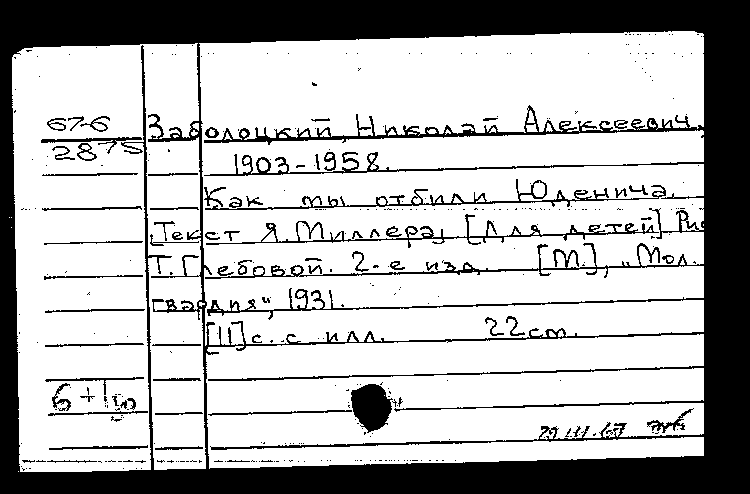 67-6
2875
Заболоцкий, Николай Алексеевич,
1903-1958.
Как мы отбили Юденича.
[Текст Я. Миллера] [Для детей] Рис
Т. Глебовой. 2-е изд. [М.], „Мол.
гвардия", 1931.
[11] с. с илл. 22 см.